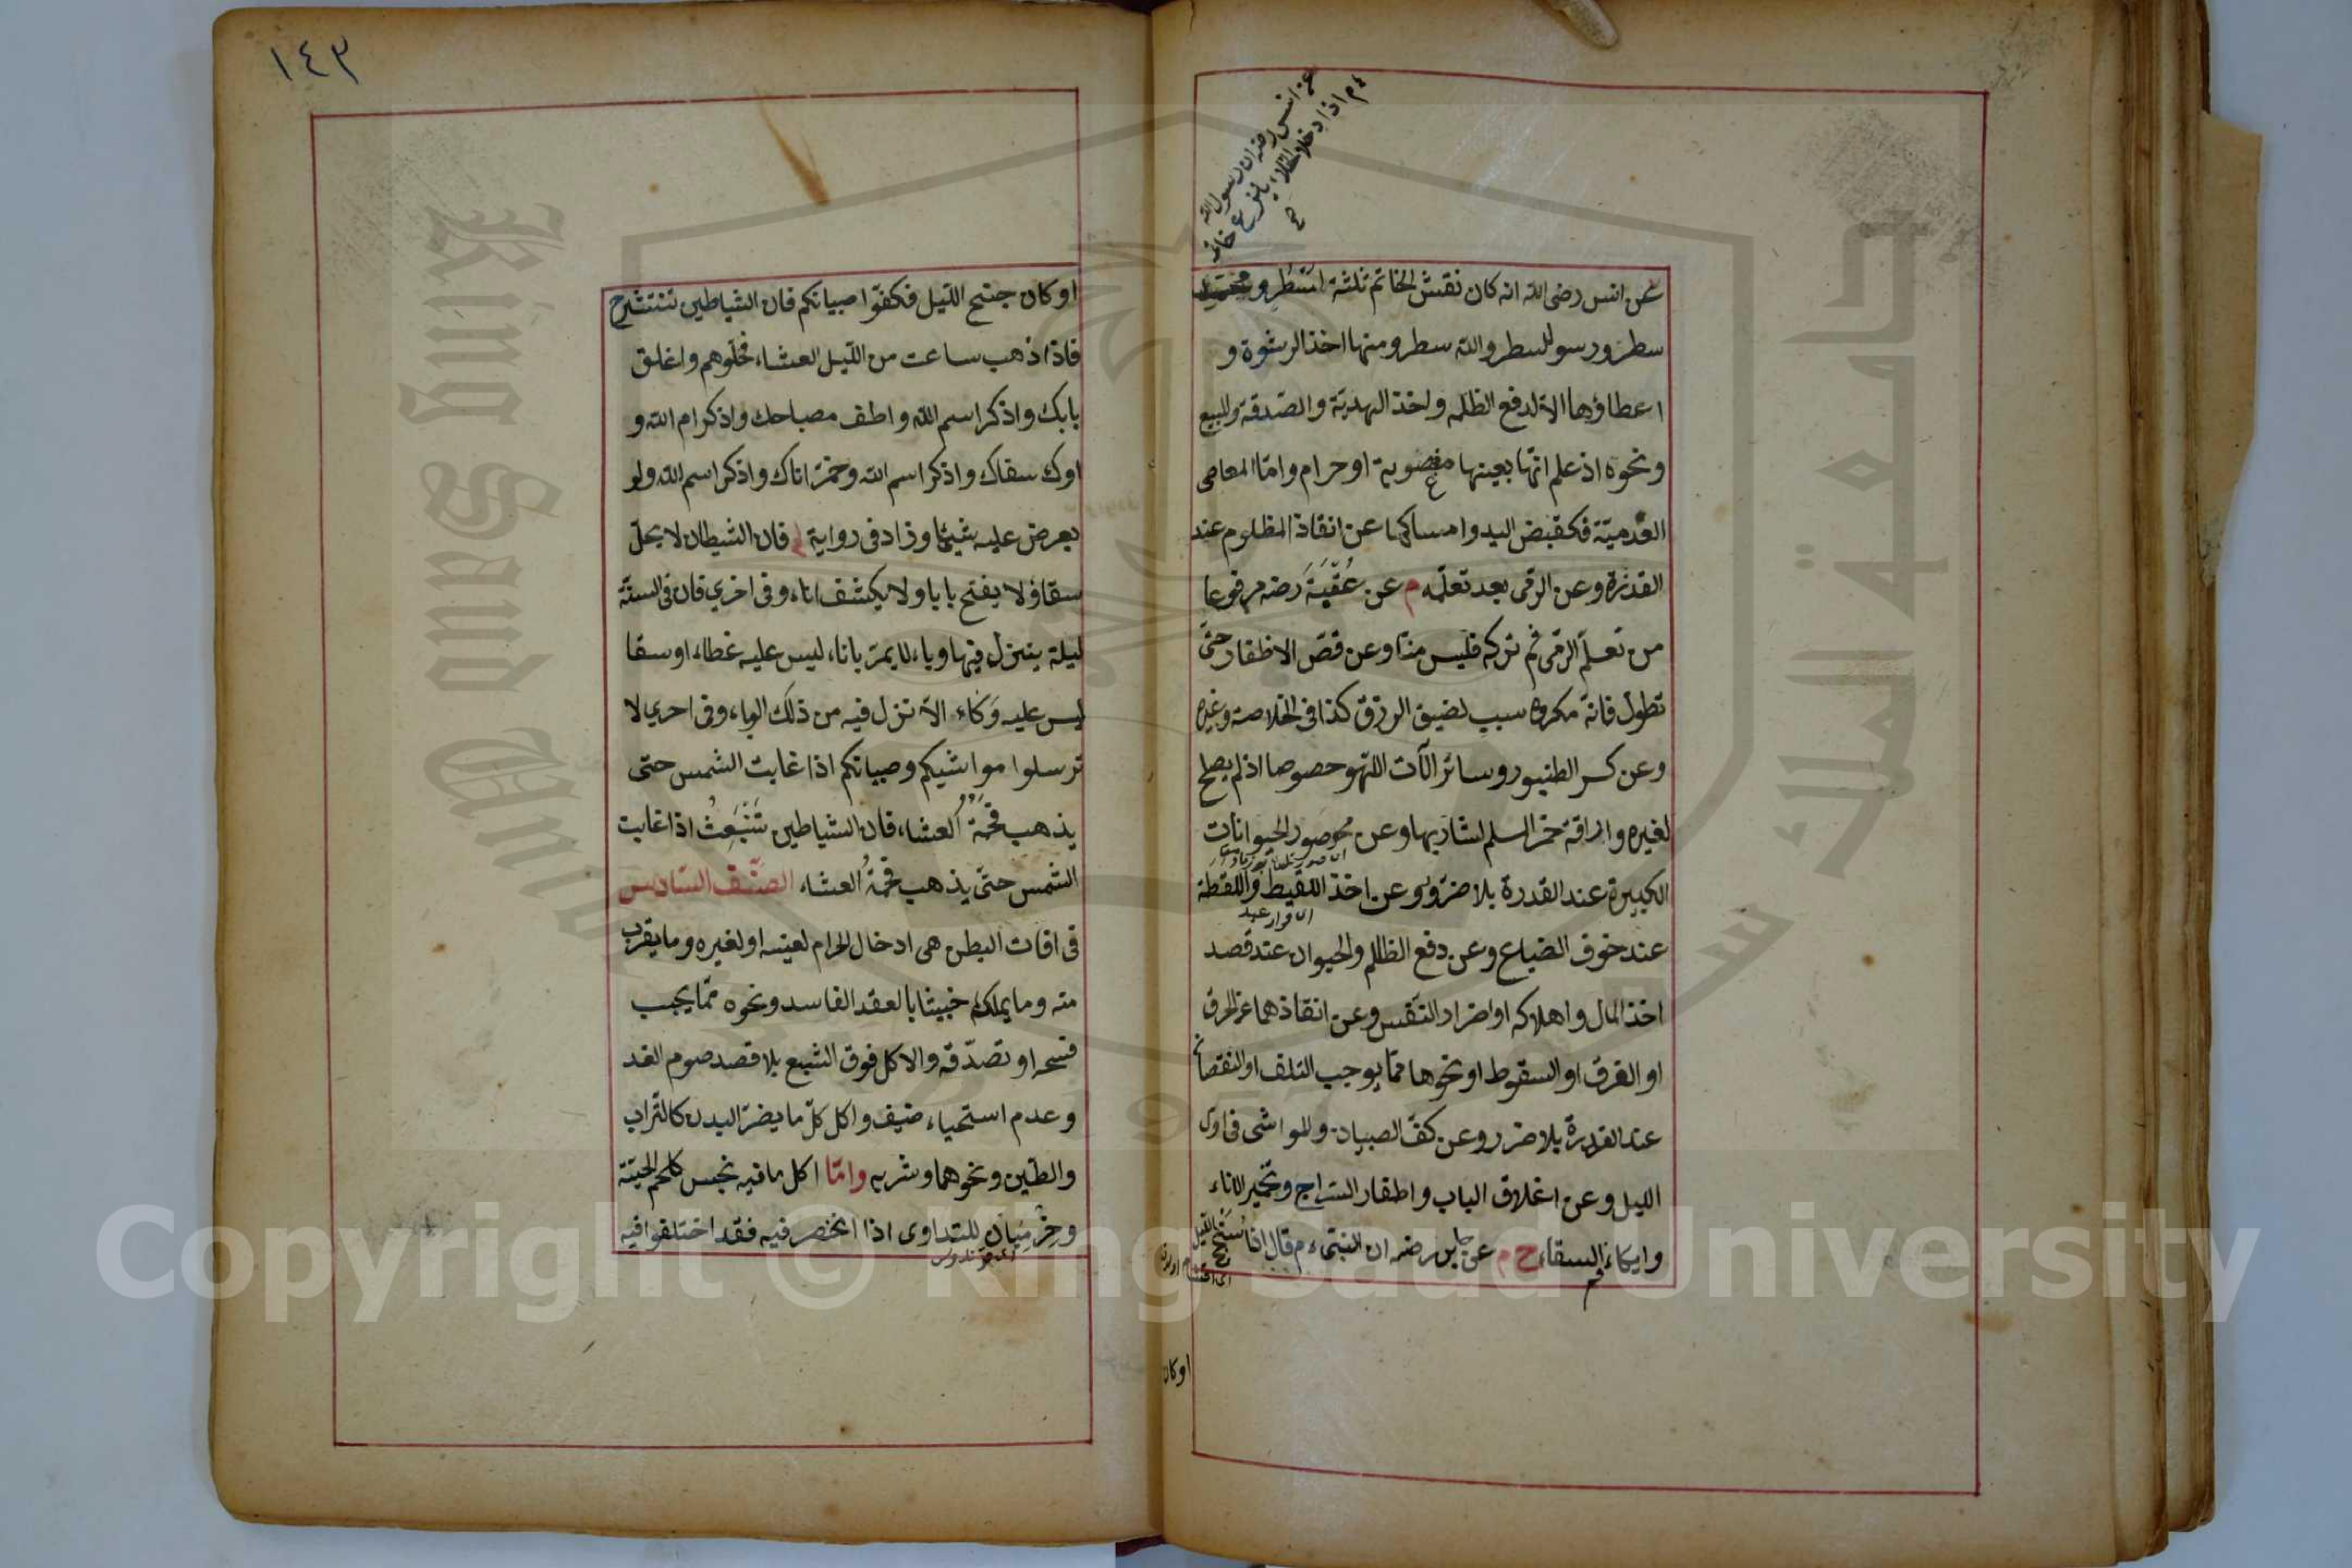 عن انس رضه ان رسول الله
ءم اذا دخل الخلاء ينزع خاتمه
عن انس رضى الله انه كان نقش الخاتم ثلثة اسطر و محمد
سطر ورسول سطر والله سطر ومنها اخذ الرشوة و
اعطاؤها الا لدفع الظلم واخذ الهدية والصدقة والبيع
ونحوه اذ علم انها بعينها مغصوبة او حرام واما المعاصى
العدمية فكقبض اليد وامساكها عن انقاذ المظلوم عند
القدرة وعن الرقى بعد تعلمه م عن عُقْبَةَ رضه مرفوعا
من تعلم الرمى ثم تركه فليس منا وعن قص الاظفار حتى
تطول فانه مكروه سبب لضيق الرزق كذا فى الخلاصة وغيره
وعن كسر الطنبور وسائر الآت اللهو حصوصا اذ لم يصلح
لغيره واراقة خمر المسلم لشاربها وعن محو صور الحيوانات
الكبيرة عند القدرة بلا ضرر وعن اخذ اللقيط واللقطة
عند خوف الضياع وعن دفع الظالم والحيوان عند قصد
اخذ المال واهلاكه او اضرار النفس وعن انقاذهما عن الحرق
او الغرق او السقوط او نحوها مما يوجب التلف او النقصان
عند القدرة بلا ضرر وعن كف الصبيان والمواشى فى اول
الليل وعن اغلاق الباب واطفار السراج وتخمير الاناء
وايكاء السقاء خ م عن جابر رضه ان النبى ءم قال اذا استجنح الليل
اوكان
١٤٣
اوكان جنح الليل فكفوا صبيانكم فان الشياطين تنتشر ح
فاذا ذهب ساعت من الليل العشاء فخلوهم واغلق
بابك واذكر اسم الله واطف مصباحك واذكر ام الله و
اوك سقاك واذكر اسم الله وخمر اناك واذكر اسم الله ولو
تعرض عليه شيئا وزاد فى رواية فان الشيطان لا يحل
سقاؤ لا يفتح بابا ولا يكشف اناء وفى اخرى فان فى السنة
ليلة ينزل فيها وباء لا يمر باناء ليس عليه غطاء او سقا
ليس عليه وَكاء الا نزل فيه من ذلك الوباء وفى اخرى لا
ترسلوا مواشيكم وصبيانكم اذا غابت الشمس حتى
يذهب فحمة العشاء فان الشياطين تَنْبَعِثُ اذا غابت
الشمس حتى يذهب فحمةُ العشاء الصنف السادس
فى افات البطن هى ادخال الحرام لعينه او لغيره وما يقرب
منه وما يملكه خبيثا بالعقد الفاسد ونحوه مما يجب
فسحه او تصدقه والاكل فوق الشبع بلا قصد صوم الغد
وعدم استحياء ضيف واكل كل ما يضر البدن كالتراب
والطين ونحوهما وشربه واما اكل ما فيه نجس كلحم الحية
وخُرْمِيَانِ للتداوى اذا انحصر فيه فقد اختلفوا فيه
King Saud University
جامعة الملك سعود
Copyright © King Saud University